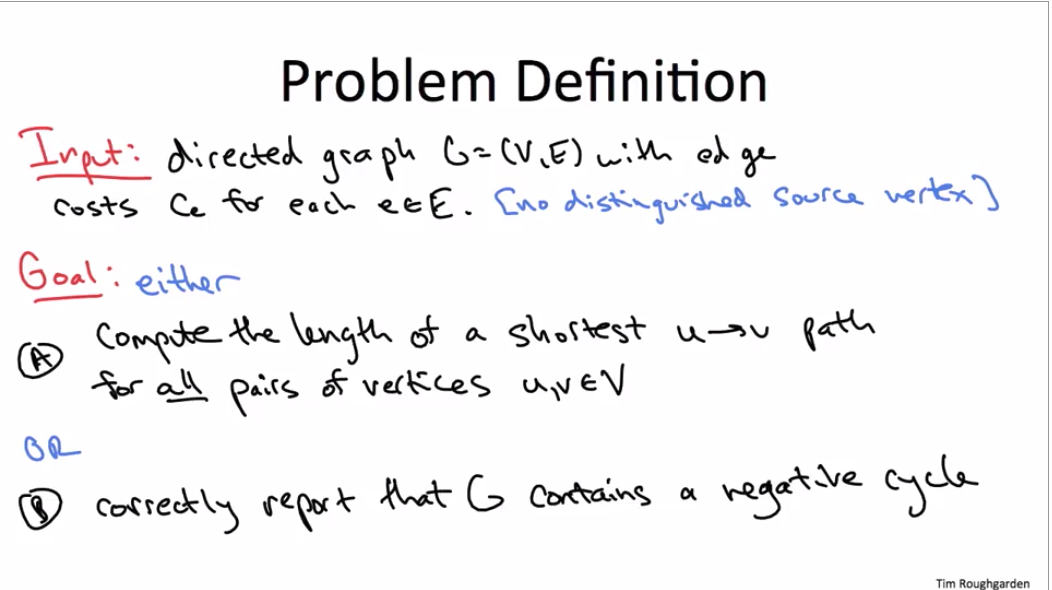 Problem Definition
Input: directed graph G=(V,E) with edge
costs Ce for each e∈E. [no distinguished source vertex]
Goal: either
(A) compute the length of a shortest u→v path
for all pairs of vertices u,v∈V
OR
(B) correctly report that G contains a negative cycle
Tim Roughgarden